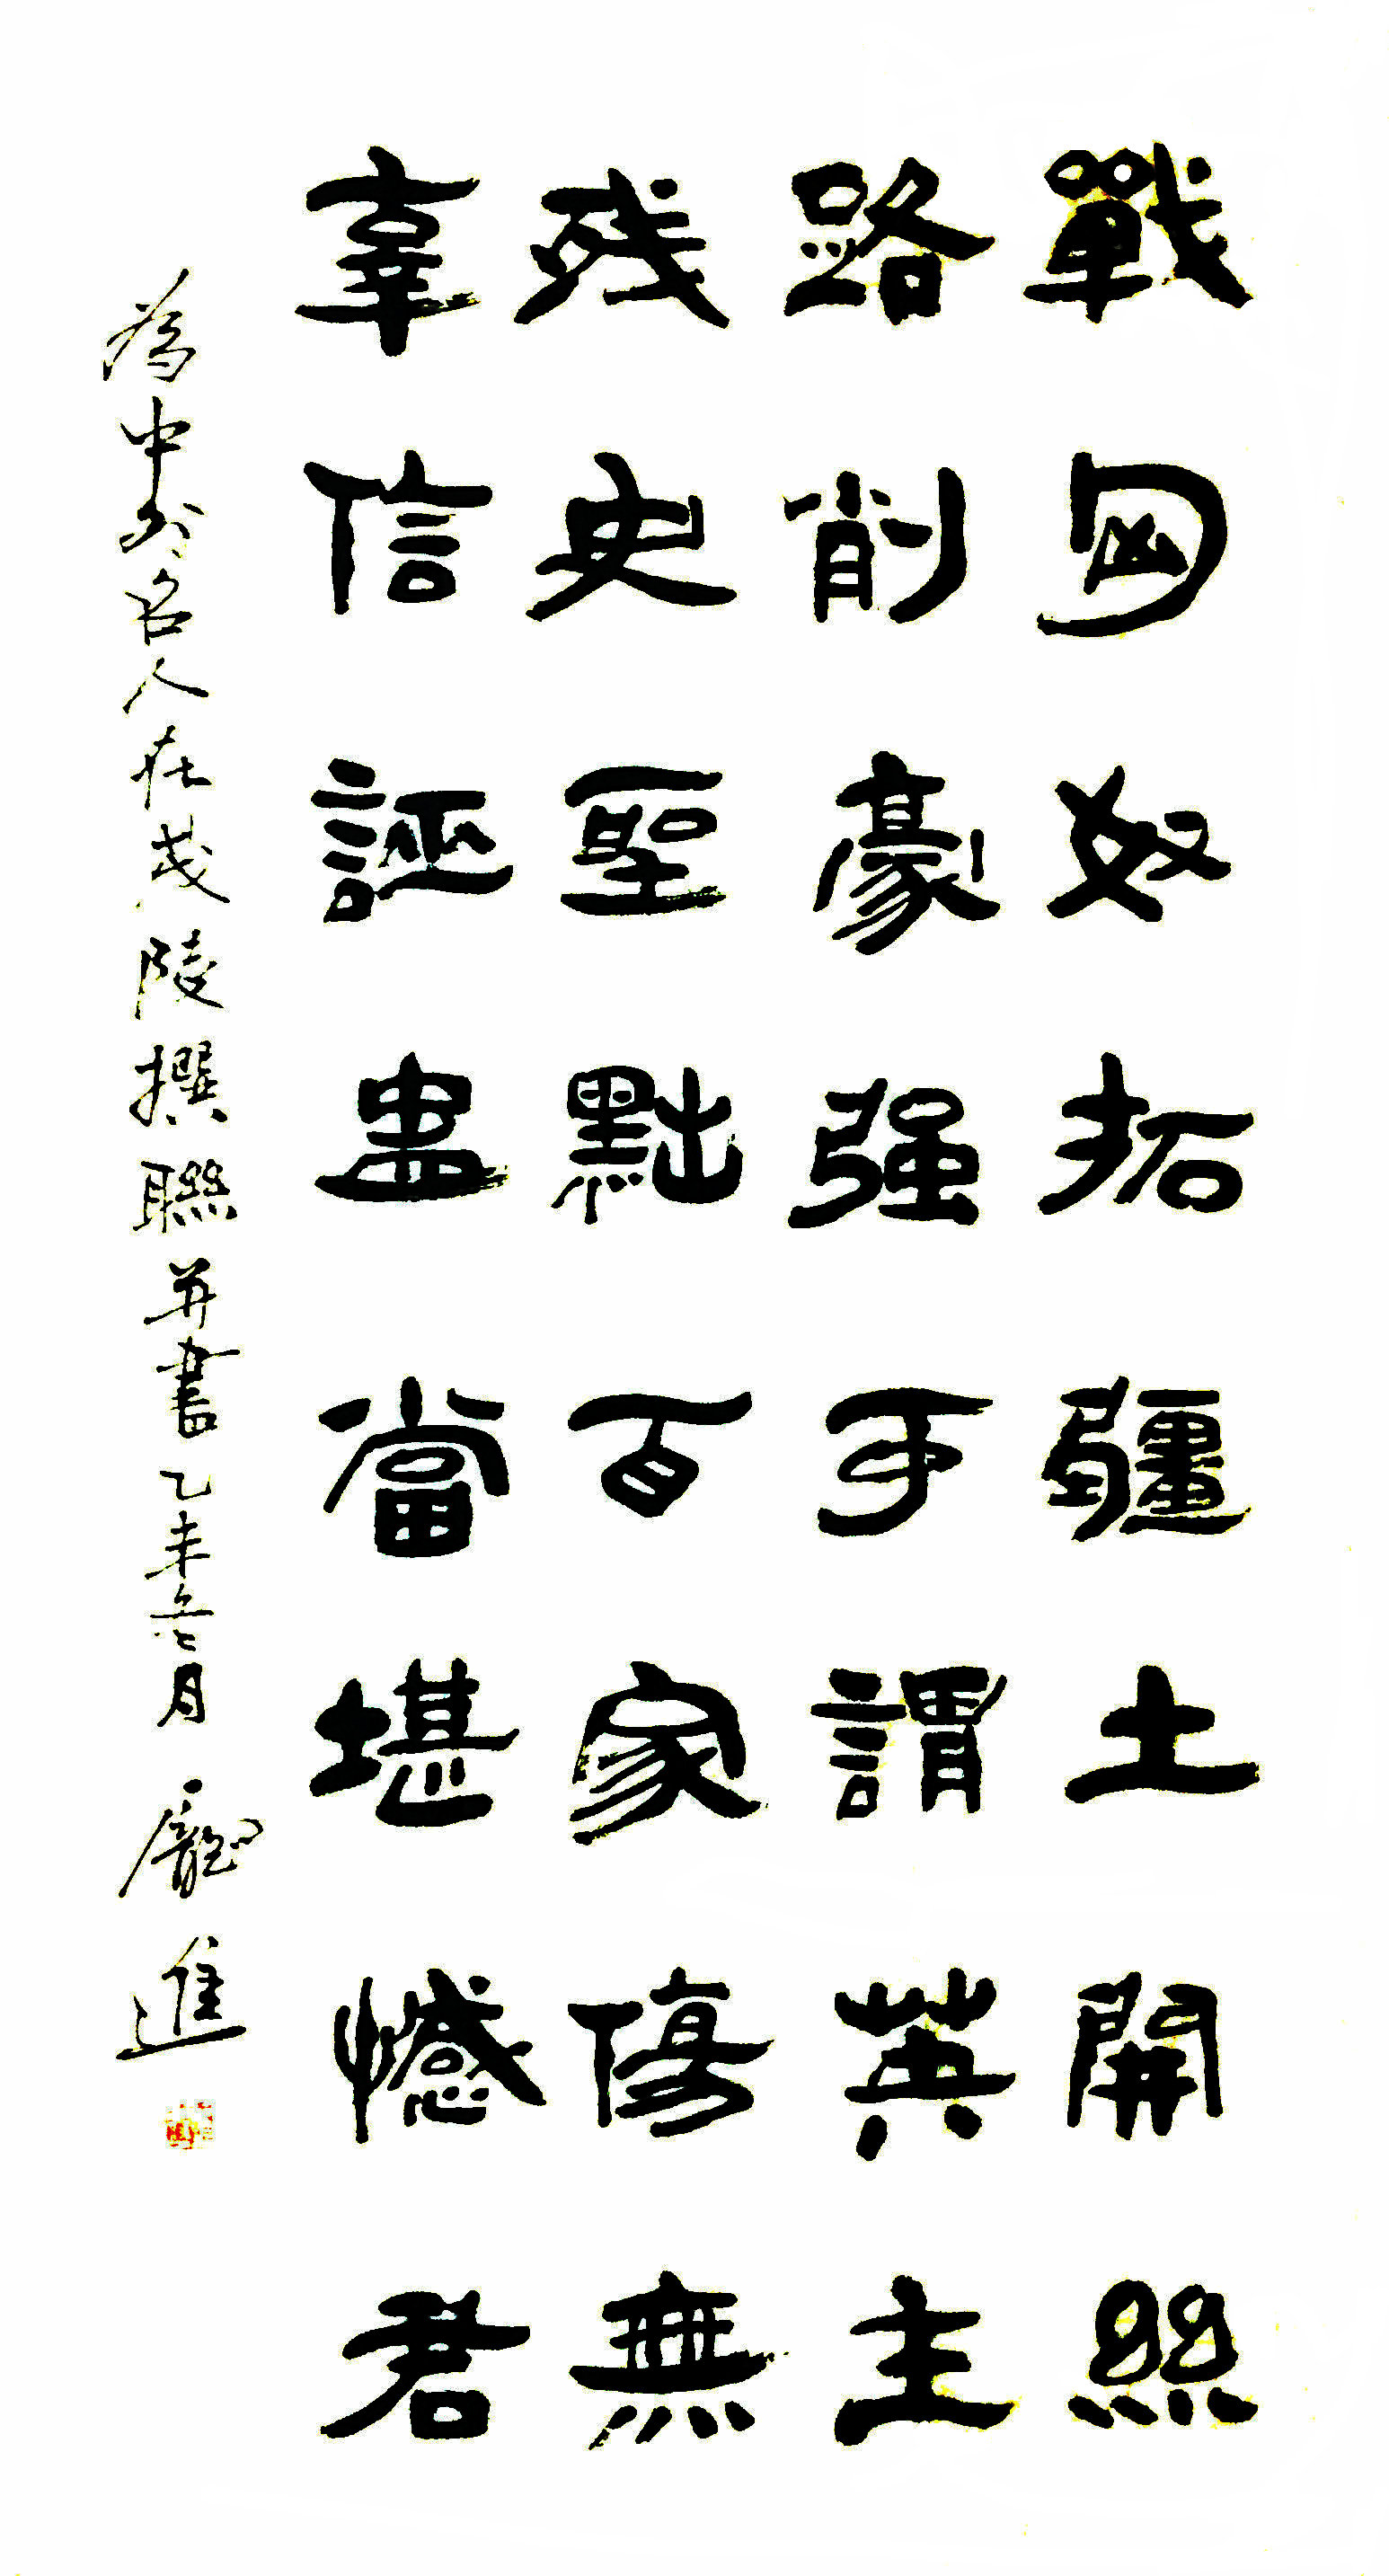 戰匈奴拓疆土開絲
路削豪强可謂英主
殘史聖黜百家傷無
辜信誣蠱當堪憾君
為中外名人在茂陵撰聯并書乙未六月龐進